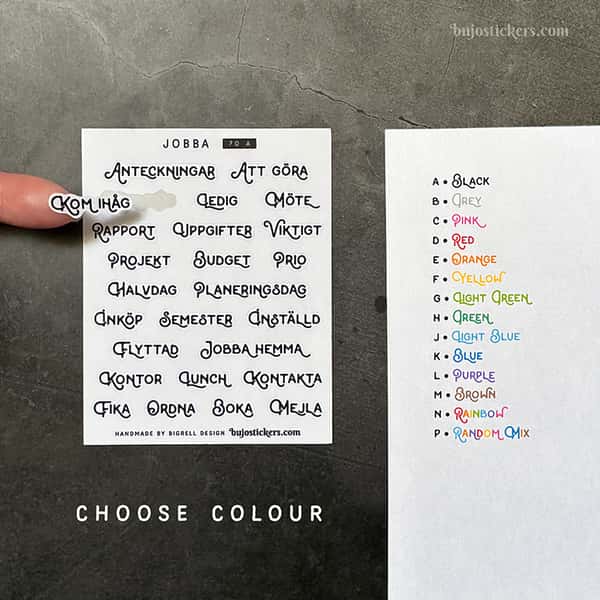 bujostickers.com
JOBBA 70 A
Anteckningar Att göra
Kom ihåg Ledig Möte
Rapport Uppgifter Viktigt
Projekt Budget Prio
Halvdag Planeringsdag
Inköp Semester Inställd
Flyttad Jobba hemma
Kontor Lunch Kontakta
Fika Ordna Boka Mejla
HANDMADE BY BIGRELL DESIGN bujostickers.com
A • Black
B • Grey
C • Pink
D • Red
E • Orange
F • Yellow
G • Light Green
H • Green
J • Light Blue
K • Blue
L • Purple
M • Brown
N • Rainbow
P • Random Mix
CHOOSE COLOUR